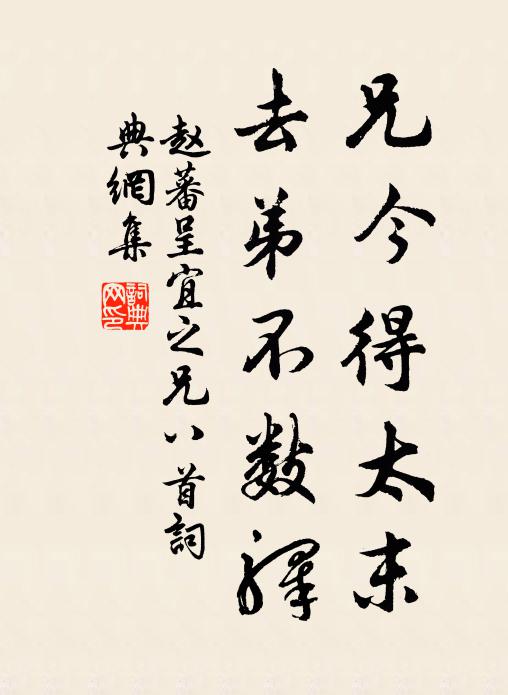 兄今得太末
去弟不数驛
赵蕃呈宜之兄八首詞
典網集
詞典
网印